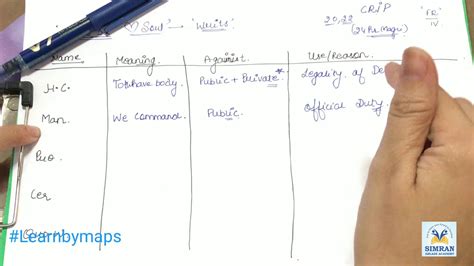 Soul → 'Writs'
CRIP
20, 22
(24 Hr. Magis)
'FR'
IV
Name Meaning Against Use/Reason.
H.C. To have body. Public + Private * Legality of De
Man. We command. Public Official Duty.
Pro.
Cer
Quo
#Learnbymaps
SIMRAN